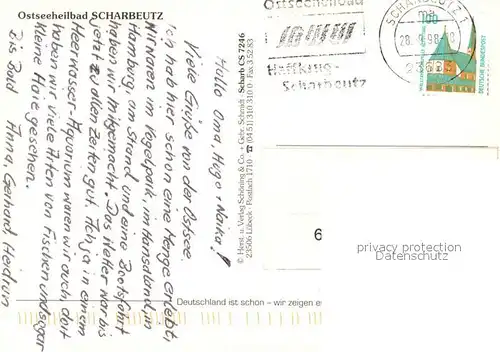 Ostseeheilbad SCHARBEUTZ
Hallo Oma, Hugo + Naika!
Viele Grüße von der Ostsee.
Ich hab hier schon eine Menge erlebt,
Wir waren im Vogelpark, im Hansaland, in
Hamburg, am Strand und eine Bootsfahrt
haben wir mitgemacht. Das Wetter war bis
jetzt zu allen Zeiten gut. Ach ja in einem
Meerwasser-Aquarium waren wir auch, dort
haben wir viele Arten von Fischen und sogar
kleine Haie gesehen.
Bis Bald Anna, Gerhard, Heidrun
© Horst. u. Verlag Schöning & Co. + Gebr. Schmidt · Scharb CS 7246
23506 Lübeck · Postfach 1710 · ☎ (0451) 310 310 · Fax 3 52 83
Deutschland ist schön – wir zeigen es
Ostseeheilbad
Haffkrug-
Scharbeutz
SCHARBEUTZ 1
28.
98
100
DEUTSCHE BUNDESPOST
6
privacy protection
watermark